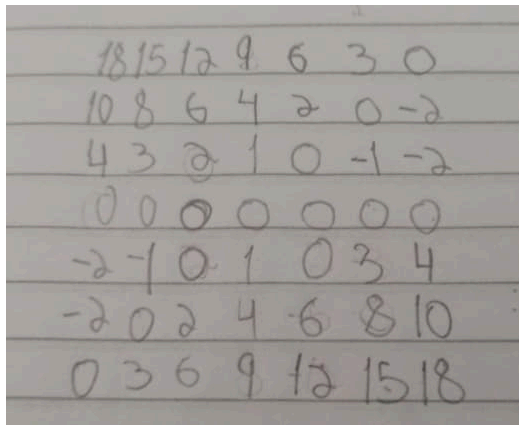 18 15 12 9 6 3 0
10 8 6 4 2 0 -2
4 3 2 1 0 -1 -2
0 0 0 0 0 0 0
-2 -1 0 1 0 3 4
-2 0 2 4 6 8 10
0 3 6 9 12 15 18